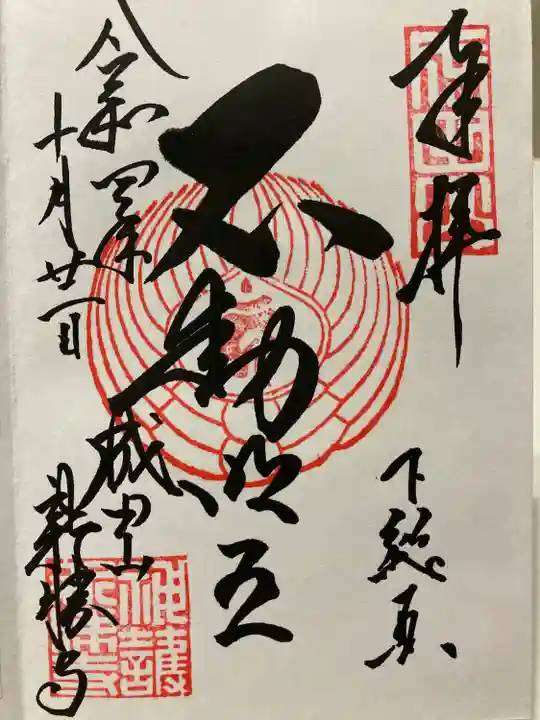 奉拝
下総
不動明王
成田山
新勝寺
令和四年
十月廿一日
神護
新勝寺